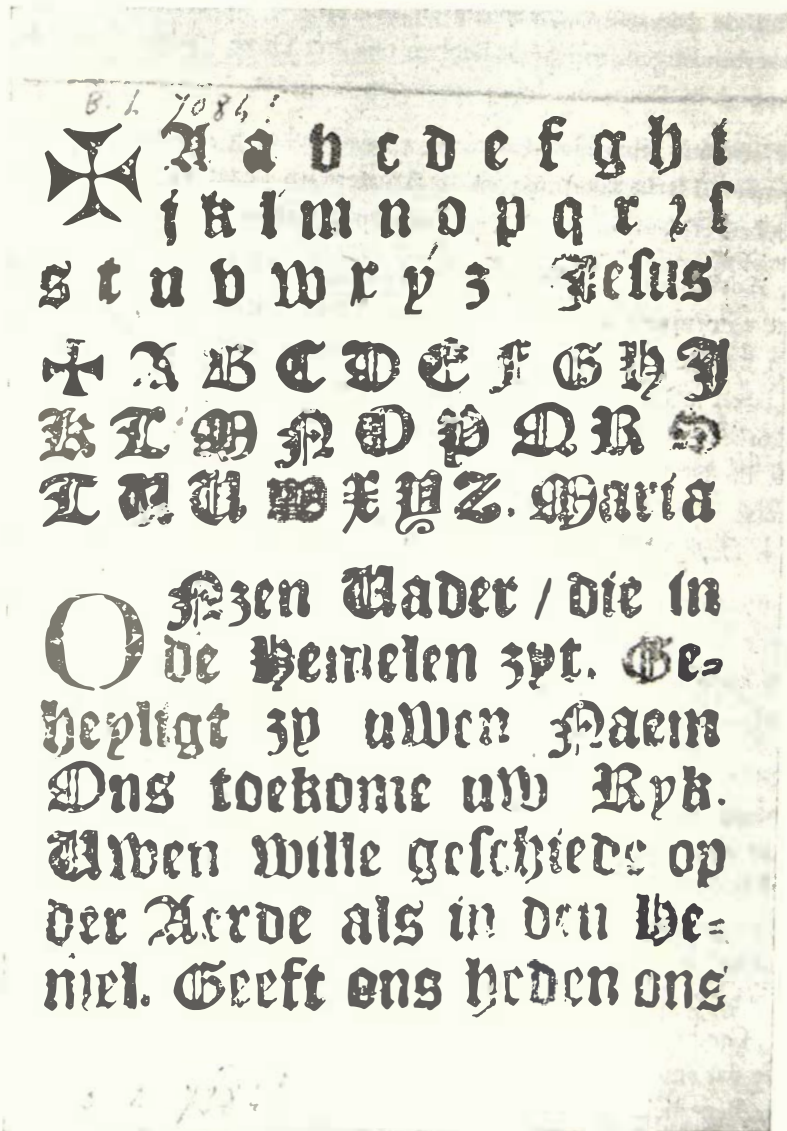 ✠ A a b c d e f g h i
j k l m n o p q r ꝛ ſ
s t u v w x ý z Jeſus
✠ A B C D E F G H J
K L M N O P Q R S
T V U W X Y Z. Maria
ONzen Vader / die in
de Hemelen zyt. Ge⸗
heyligt zy uwen Naem
Ons toekome uw Ryk.
Uwen wille geſchiede op
der Aerde als in den He⸗
mel. Geeft ons heden ons